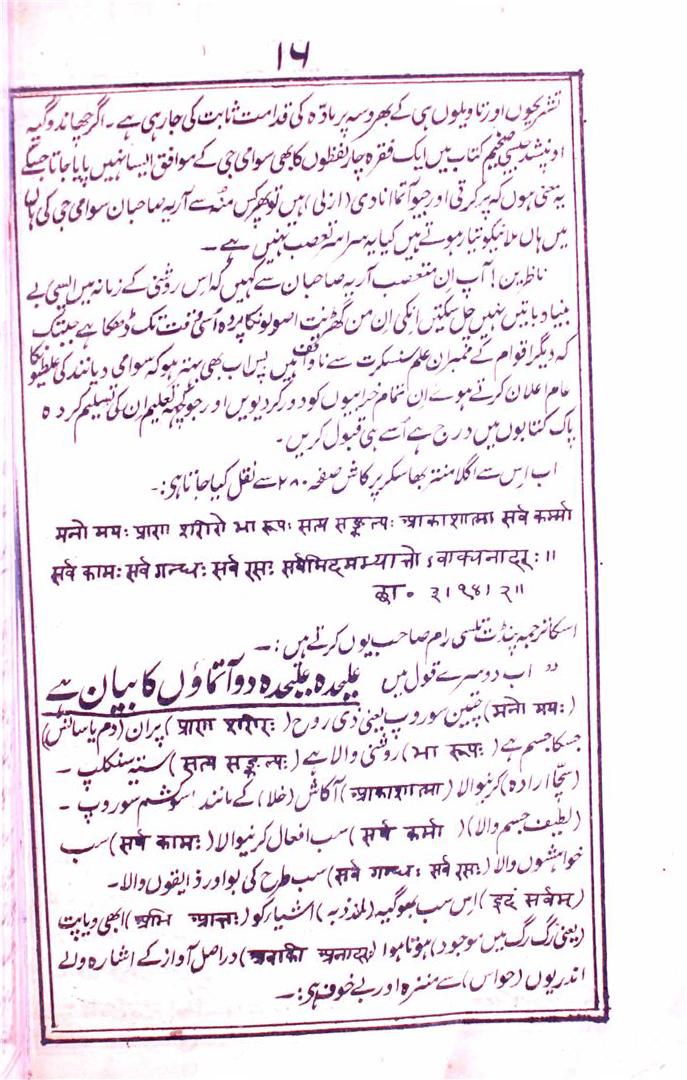 ۱۶
تشریحوں اور تاویلوں ہی کے بھروسہ پر مادّہ کی قدامت ثابت کی جا رہی ہے۔ اگر چھاندوگیہ
اوپنیشد جیسی ضخیم کتاب میں ایک فقرہ چار لفظوں کا بھی سوامی جی کے موافق ایسا نہیں پایا جاتا جسکے
یہ معنی ہوں کہ پرکرتی اور جیو آتما انادی (ازلی) ہیں تو پھر کس منہ سے آریہ صاحبان سوامی جی کی ہاں
میں ہاں ملانیکو تیار ہوتے ہیں کیا یہ سراسر تعصب نہیں ہے۔
ناظرین! آپ اِن متعصب آریہ صاحبان سے کہیں کہ اس روشنی کے زمانہ میں ایسی بے
بنیاد باتیں نہیں چل سکتیں اِنکی اِن من گھڑنت اصولونکا پردہ اُسی وقت تک ڈھکا ہے جبتک
کہ دیگر اقوام کے ممبران علم سنسکرت سے ناواقف ہیں پس اب بھی بہتر ہو کہ سوامی دیانند کی غلطیونکا
عام اعلان کرتے ہوے اِن تمام خرابیوں کو دور کر دیویں اور جو کچھ تعلیم اِن کی تسلیم کردہ
پاک کتابوں میں درج ہے اُسے ہی قبول کریں۔
اب اِس سے اگلا منتر بھاسکر پرکاش صفحہ ۲۸۰ سے نقل کیا جاتا ہی:۔
मनो मयः प्राण शरीरो भा रूपः सत्य सङ्कल्पः प्राकाशात्मा सर्व कर्म्मा
सर्व कामः सर्व गन्धः सर्व रसः सर्वमिदमभ्यात्तो ऽवाक्यनादरः ॥
छा॰ ३।१४।२॥
اسکا ترجمہ پنڈت تلسی رام صاحب یوں کرتے ہیں:۔
"اب دوسرے قول میں علیحدہ علیحدہ دو آتماؤں کا بیان ہے
(मनो मयः) چیتن سوروپ یعنی ذی روح (प्राण शरीरः) پران (دم یا سانس)
جسکا جسم ہے (भा रूपः) روشنی والا ہے (सत्य सङ्कल्पः) ستیہ سنکلپ۔
(سچّا ارادہ) کرنیوالا (प्राकाशात्मा) آکاش (خلا) کے مانند سوکشم سوروپ۔
(لطیف جسم والا) (सर्व कर्मा) سب افعال کرنیوالا (सर्व कामः) سب
خواہشوں والا (सर्व गन्धः सर्व रसः) سب طرح کی بو اور ذایقوں والا۔
(इदं सर्वम्) اِس سب بھوگیہ (لذیذ) اشیاء کو (अभि आत्तः) ابھی ویاپت
(یعنی رگ رگ میں موجود) ہوتا ہوا (अवाकी अनादरः) دراصل آواز کے اشارہ والے
اندریوں (حواس) سے منزہ اور بے خوف ہی:۔